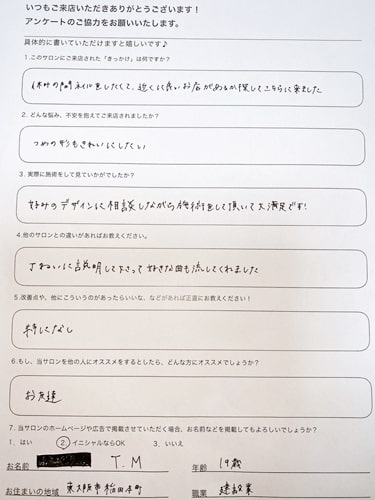 いつもご来店いただきありがとうございます!
アンケートのご協力をお願いいたします。
具体的に書いていただけますと嬉しいです♪
1.このサロンにご来店された「きっかけ」は何ですか?
休みの間ネイルをしたくて、近くに良いお店があるか探してこちらに来ました
2.どんな悩み、不安を抱えてご来店されましたか?
つめの形もきれいにしたい
3.実際に施術をして見ていかがでしたか?
好みのデザインに相談しながら施術をして頂いて大満足です!
4.他のサロンとの違いがあればお教えください。
丁ねいに説明して下さって好きな曲も流してくれました
5.改善点や、他にこういうのがあったらいいな、などがあれば正直にお教えください!
特になし
6.もし、当サロンを他の人にオススメをするとしたら、どんな方にオススメでしょうか?
お友達
7.当サロンのホームページや広告で掲載させていただく場合、お名前などを掲載してもよろしいでしょうか?
1、はい 2、イニシャルならOK 3、いいえ
お名前 T.M 年齢 19歳
お住まいの地域 東大阪市稲田本町 職業 建設業